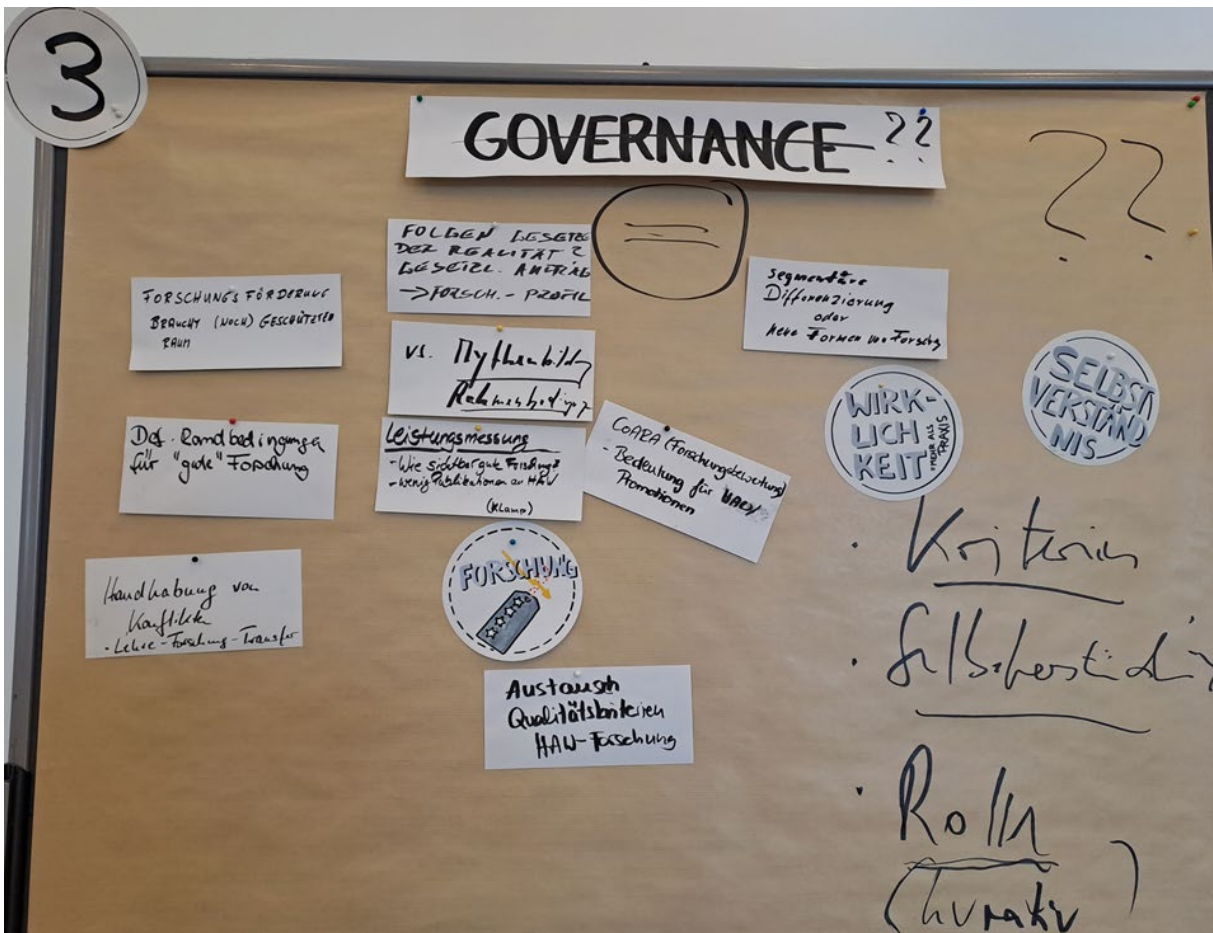 3
GOVERNANCE ??
??
=
FOLGEN GESETZE
DER REALITÄT?
GESETZL. AUFTRAG
-> FORSCH. - PROFIL
FORSCHUNGSFÖRDERUNG
BRAUCHT (NOCH) GESCHÜTZTEN
RAUM
segmentäre
Differenzierung
oder
neue Formen von Forschg
vs. Mythenbildg
Rahmenbedingg
Def. Randbedingungen
für "gute" Forschung
Leistungsmessung
- Wie sichtbar gute Forschung?
- wenig Publikationen an HAW
(Klamp)
CoARA (Forschungsbewertung)
- Bedeutung für HAW/
Promotionen
WIRK-
LICH
KEIT
MEHR ALS
PRAXIS
SELBST
VERSTÄND
NIS
Handhabung von
Konflikten
- Lehre-Forschung-Transfer
FORSCHUNG
Austausch
Qualitätskriterien
HAW-Forschung
· Kriterien
·
· Rolle